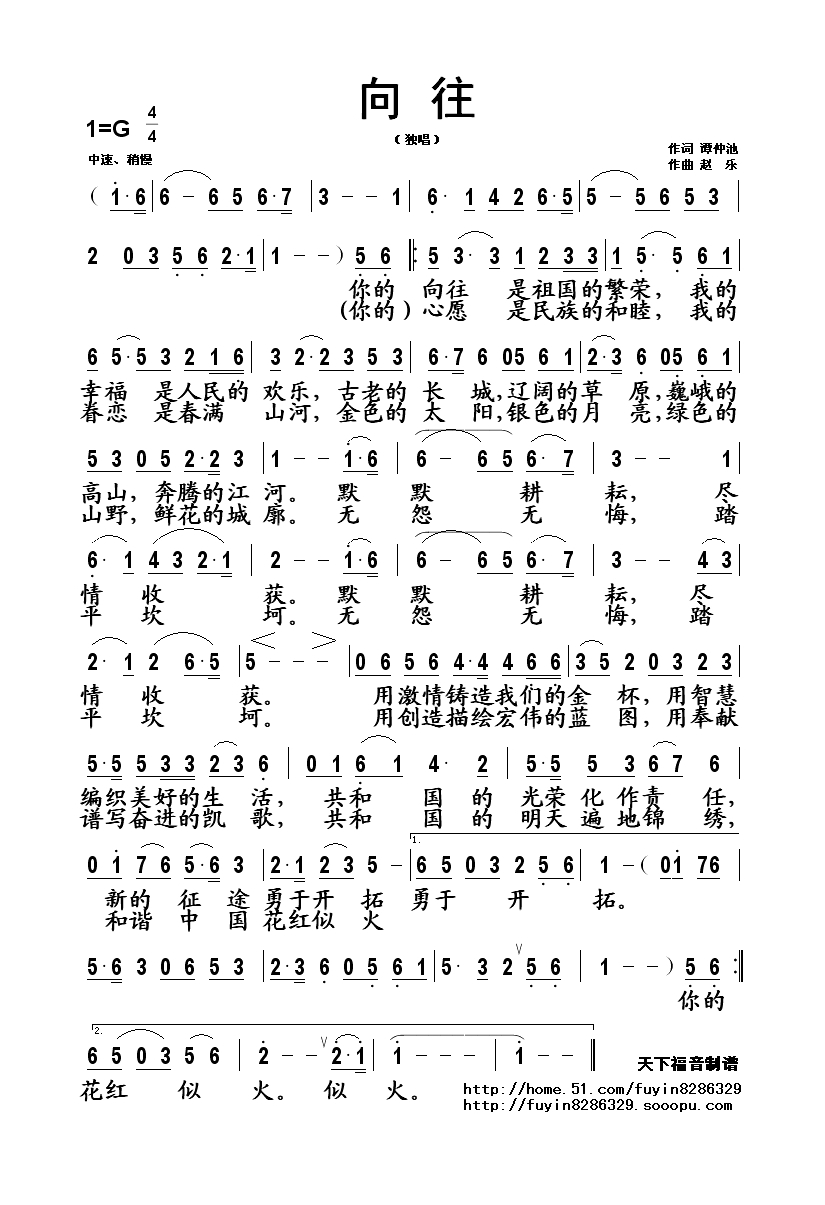 向 往
（独唱）
1=G 4/4
中速、稍慢
作词 谭仲池
作曲 赵 乐
( 1·6 | 6 - 6 5 6·7 | 3 - - 1 | 6· 1 4 2 6·5 | 5 - 5 6 5 3 |
2 0 3 5 6 2·1 | 1 - - ) 5 6 ‖: 5 3· 3 1 2 3 3 | 1 5· 5 6 1 |
你的 向往 是祖国的繁荣， 我的
(你的)心愿 是民族的和睦， 我的
6 5·5 3 2 1 6 | 3 2·2 3 5 3 | 6·7 6 05 6 1 | 2·3 6 05 6 1 |
幸福 是人民的 欢乐，古老的 长 城，辽阔的草 原，巍峨的
眷恋 是春满 山河，金色的 太 阳，银色的月 亮，绿色的
5 3 0 5 2·2 3 | 1 - - 1·6 | 6 - 6 5 6· 7 | 3 - - 1 |
高山，奔腾的江 河。 默 默 耕 耘， 尽
山野，鲜花的城 廓。 无 怨 无 悔， 踏
6· 1 4 3 2·1 | 2 - - 1·6 | 6 - 6 5 6·7 | 3 - - 4 3 |
情 收 获。 默 默 耕 耘， 尽
平 坎 坷。 无 怨 无 悔， 踏
2· 1 2 6·5 | 5 - - - | 0 6 5 6 4·4 4 6 6 | 3 5 2 0 3 2 3 |
情 收 获。 用激情铸造我们的金 杯，用智慧
平 坎 坷。 用创造描绘宏伟的蓝 图，用奉献
5·5 5 3 3 2 3 6 | 0 1 6 1 4· 2 | 5·5 5 3 6 7 6 |
编织美好的生 活， 共和 国 的 光荣 化 作责 任，
谱写奋进的凯 歌， 共和 国 的 明天 遍 地锦 绣，
0 1 7 6 5·6 3 | 2·1 2 3 5 - | 1. 6 5 0 3 2 5 6 | 1 - ( 01 76 |
新的 征 途 勇于开 拓 勇于 开 拓。
和谐 中 国 花红似 火
5·6 3 0 6 5 3 | 2·3 6 0 5 6 1 | 5· 3 2 ∨ 5 6 | 1 - - ) 5 6 :‖
你的
2. 6 5 0 3 5 6 | 2 - - ∨ 2·1 | 1 - - - | 1 - - ‖
花红 似 火。 似 火。
天下福音制谱
http://home.51.com/fuyin8286329
http://fuyin8286329.sooopu.com